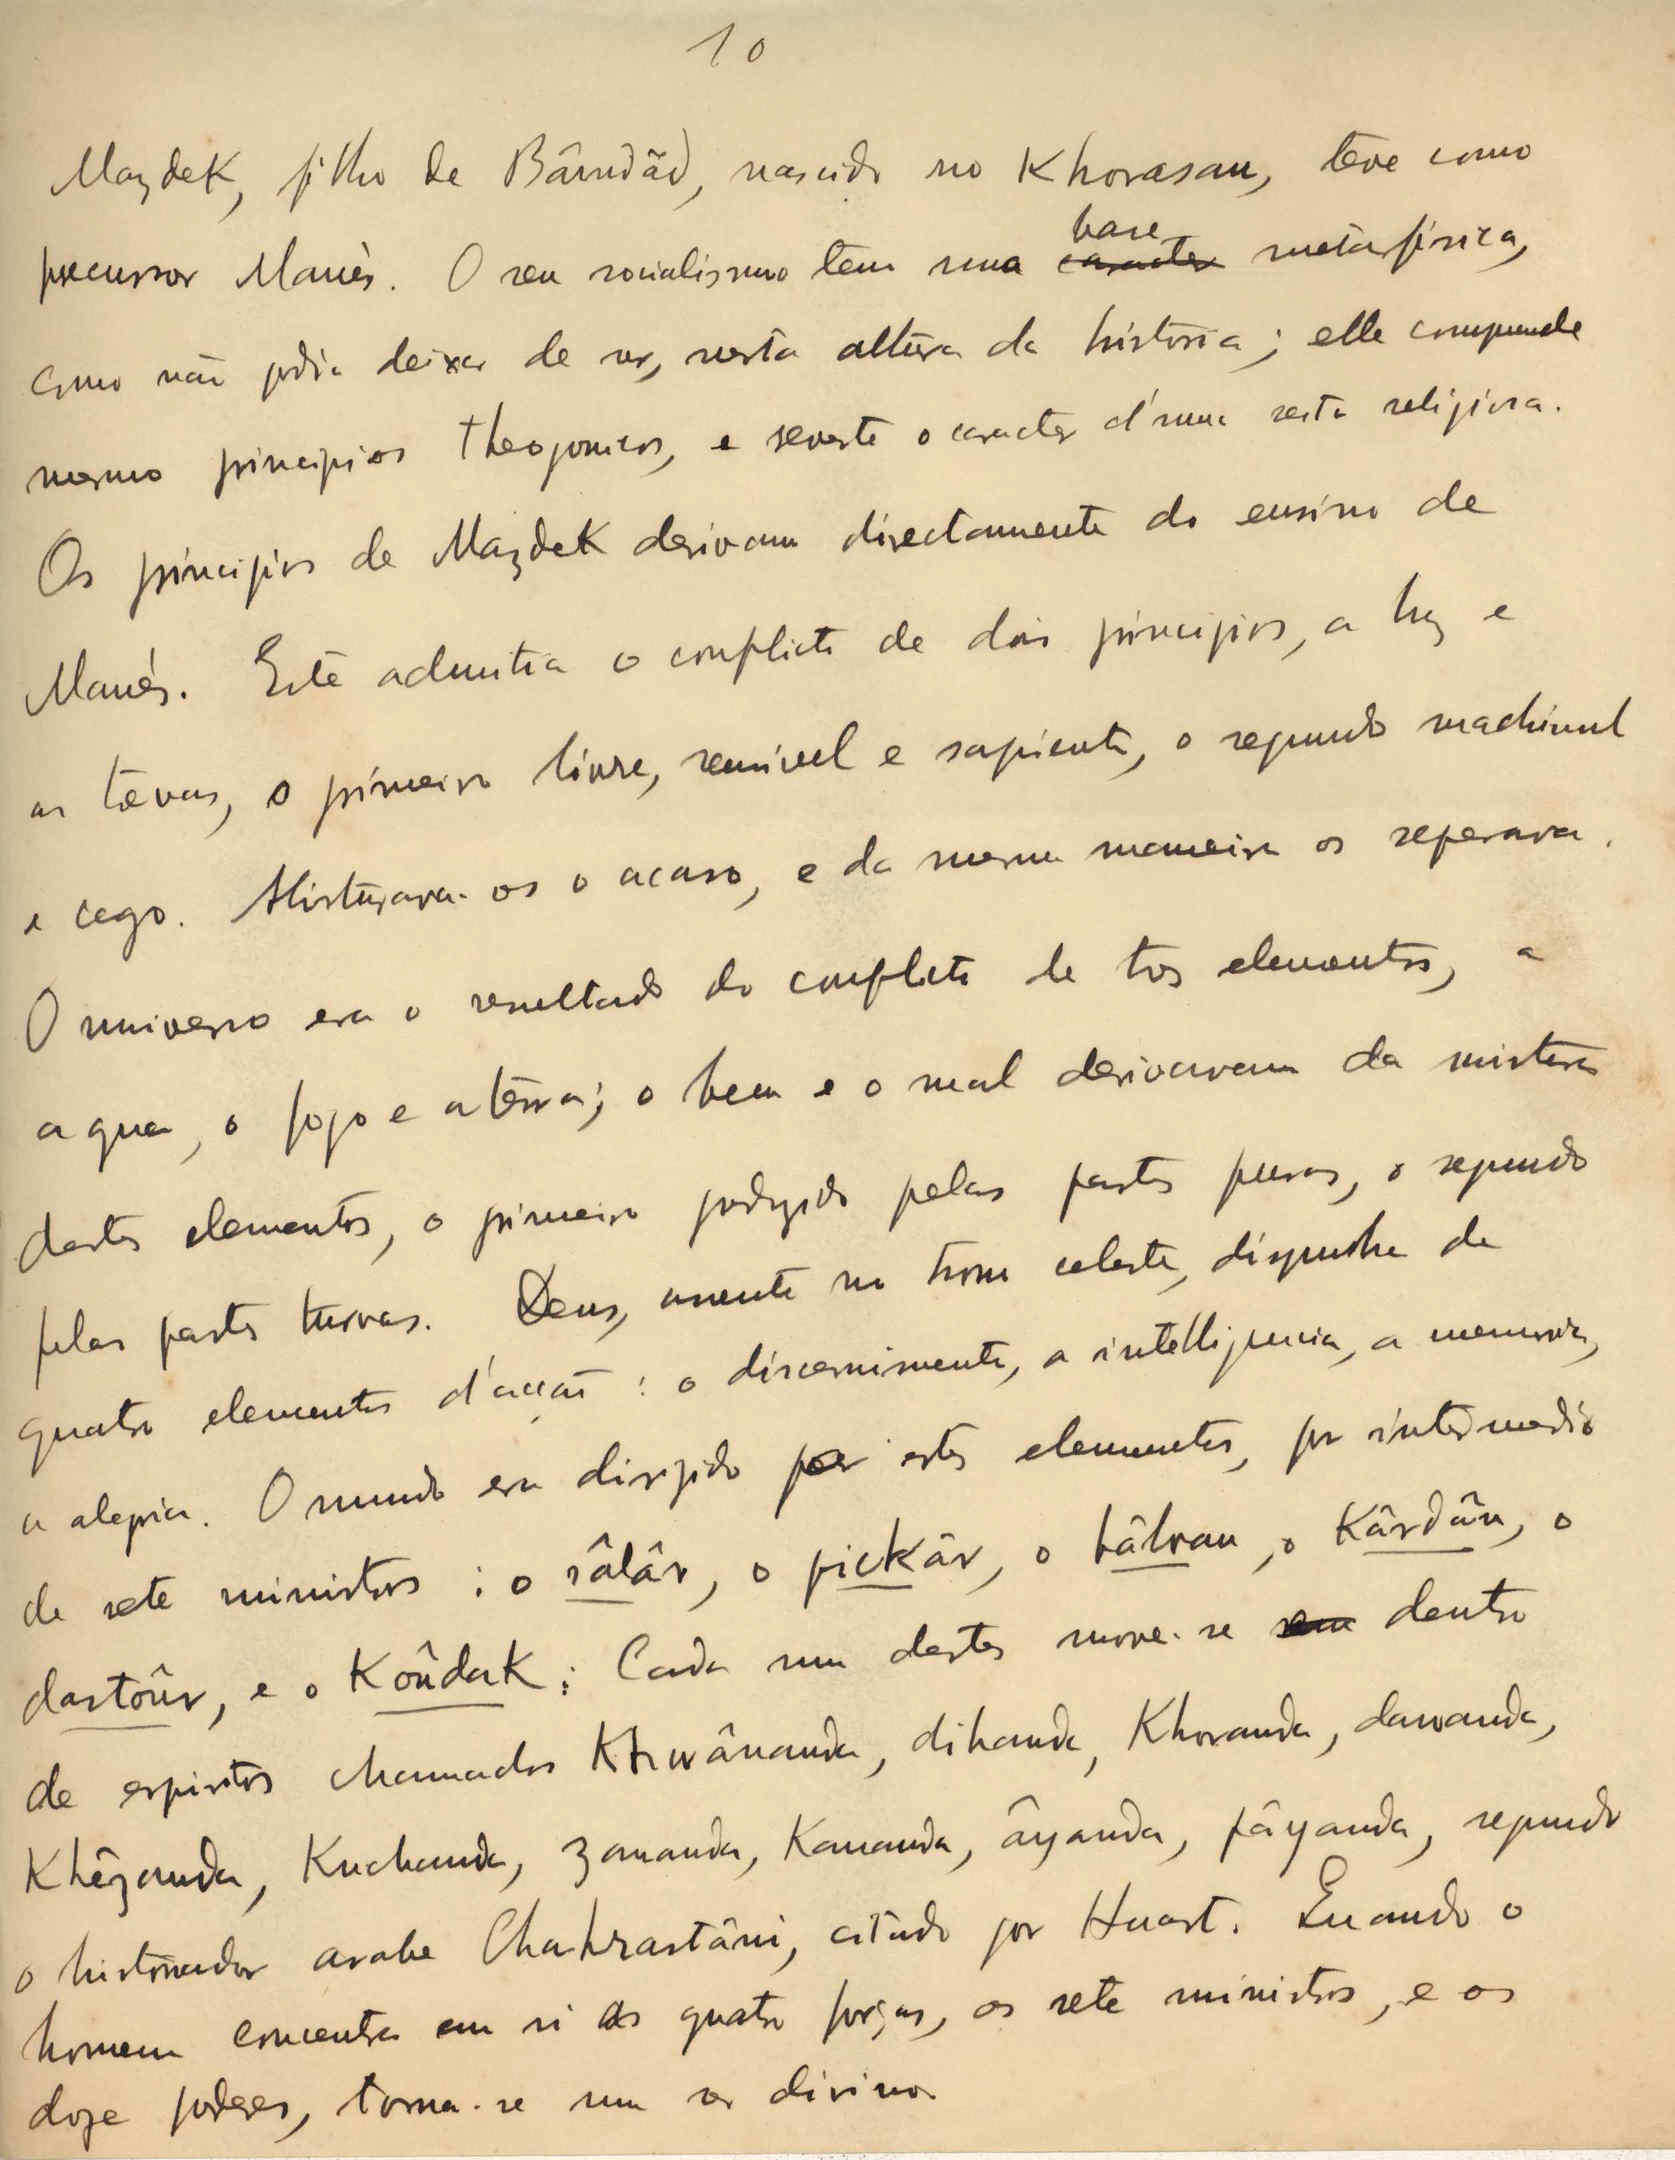 10
Mazdek, filho de Bâmdâd, nascido no Khorasan, teve como
precursor Manès. O seu socialismo tem uma base caracter metafísica,
como não podia deixar de ser, nesta altura da historia; elle comprende
mesmo principios theogonicos, e reveste o caracter d'uma seita religiosa.
Os principios de Mazdek derivam directamente do ensino de
Manès. Este admittia o conflicto de dois principios, a luz e
as trevas, o primeiro livre, sensivel e sapiente, o segundo machinal
e cego. Misturava-os o acaso, e da mesma maneira os separava.
O universo era o resultado do conflicto de tres elementos, a
agua, o fogo e a terra; o bem e o mal derivavam da mistura
destes elementos, o primeiro produzido pelas partes puras, o segundo
pelas partes turvas. Deus, assente no trono celeste, dispunha de
quatro elementos d'acção: o discernimento, a intelligencia, a memoria,
a alegria. O mundo era dirigido por estes elementos, por intermedio
de sete ministros: o sâlâr, o pickâr, o bâlvan, o Kârdân, o
dastoûr, e o Koûdak: Cada um destes move-se em dentro
de espiritos chamados Khwânanda, dihanda, Khoranda, dawanda,
Khêzanda, Kuchanda, zananda, Kananda, âyanda, pâyanda, segundo
o historiador arabe Chahrastâni, citado por Huart. Quando o
homem concentra em si as quatro forças, os sete ministros, e os
doze poderes, torna-se um ser divino.